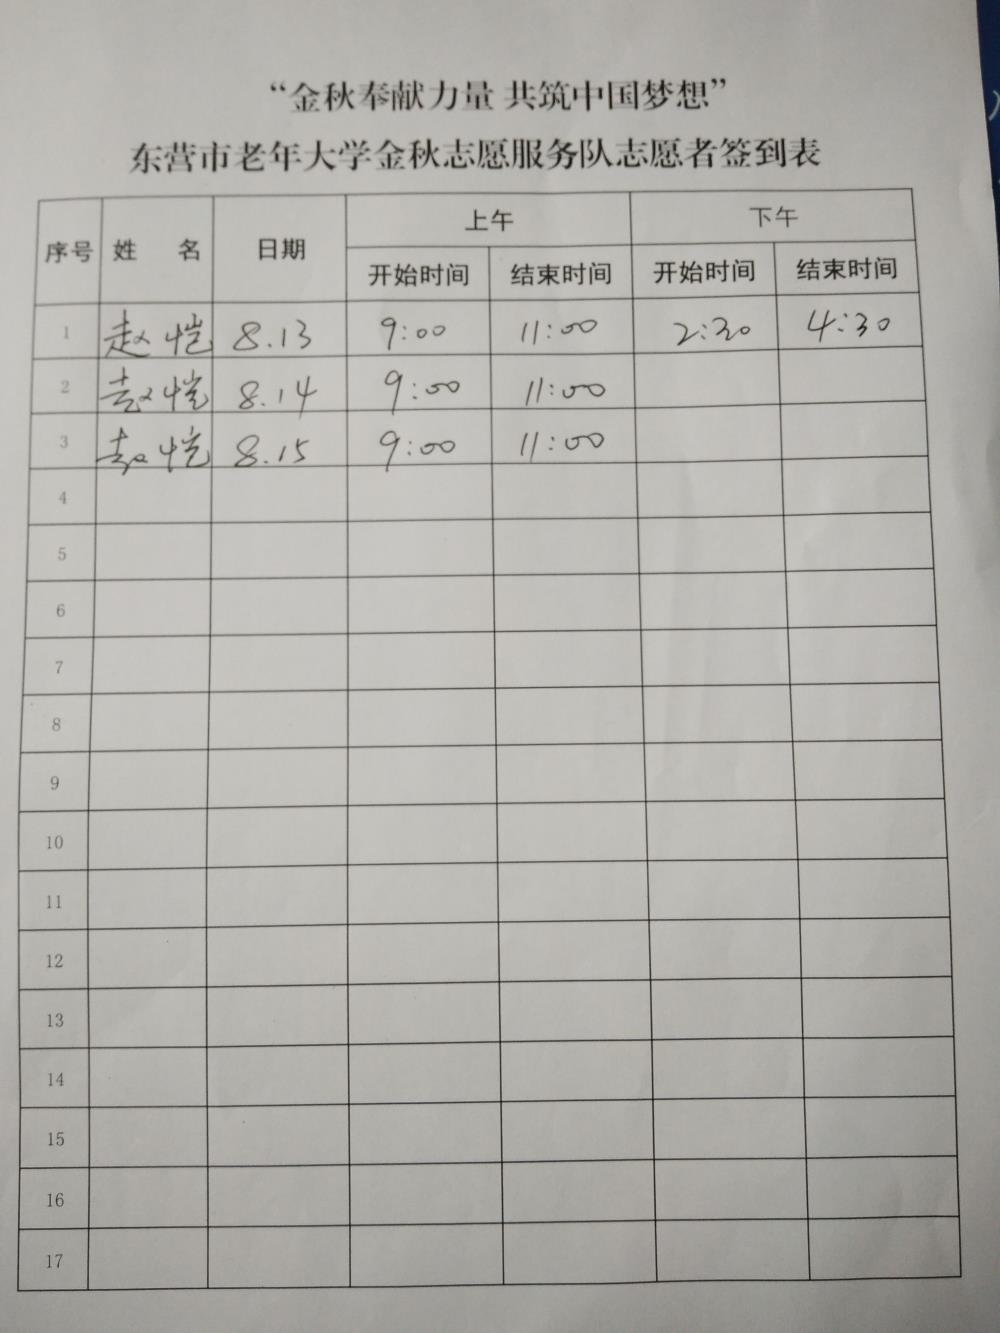 “金秋奉献力量 共筑中国梦想”
东营市老年大学金秋志愿服务队志愿者签到表
序号 姓 名 日期 上午 下午
开始时间 结束时间 开始时间 结束时间
1 赵恺 8.13 9:00 11:00 2:30 4:30
2 赵恺 8.14 9:00 11:00
3 赵恺 8.15 9:00 11:00
4
5
6
7
8
9
10
11
12
13
14
15
16
17